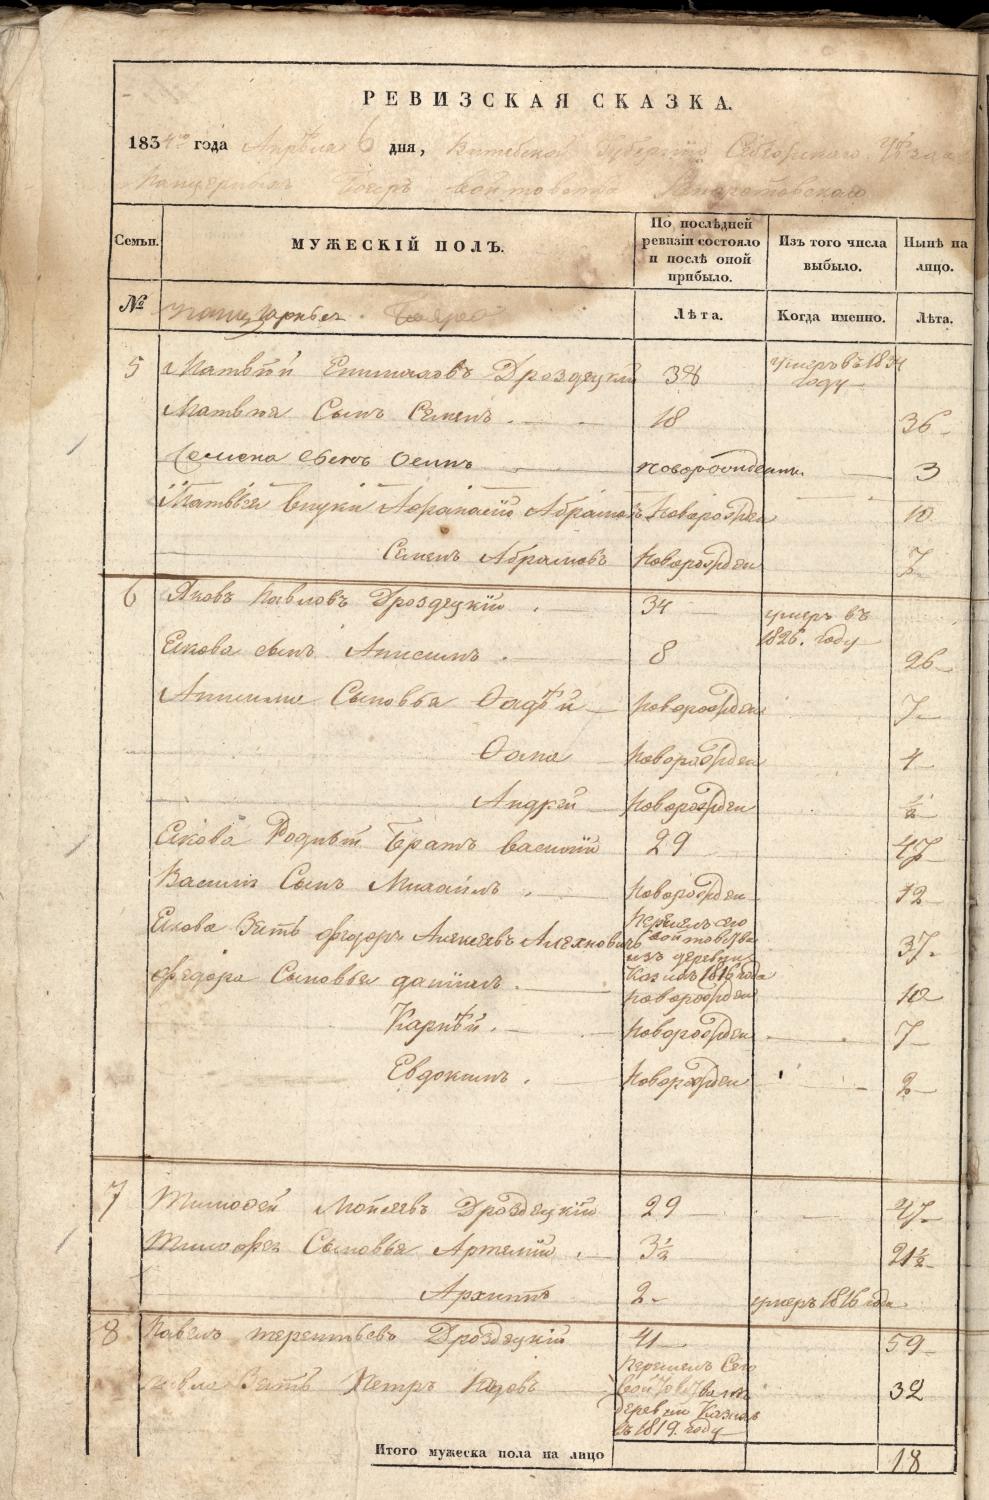 РЕВИЗСКАЯ СКАЗКА.
1834го года Апреля 6 дня, Витебской Губернии Себежского Уезда
Панцерных Бояръ Войтовства
Семьи. МУЖЕСКІЙ ПОЛЪ. По послѣдней ревизіи состояло и послѣ оной прибыло. Изъ того числа выбыло. Нынѣ на лицо.
№ Панцырныхъ Бояръ Лѣта. Когда именно. Лѣта.
5 Матвѣй Дроздецкій 38 умеръ въ 1831 году
Матвѣя Сынъ Семенъ. 18 36
Семена сынъ Осипъ новорожденн. 3
Матвѣя внуки Афанасій Абрамовъ Новорожден 10
Семенъ Абрамовъ Новорожден 7
6 Яковъ Павловъ Дроздецкій. 34 умеръ въ 1826. году
Якова сынъ Анисимъ. 8 26
Анисима Сыновья Фадѣй новорожден 7
Фома Новорожден 4
Андрей Новорожден ½
Якова Родный Братъ Василій 29 47
Василія Сынъ Михайла. Новорожден 12
Якова Зять Федоръ Алексѣевъ Алехновичь Перешелъ сего войтовства изъ деревни 1816 года 37
Федора Сыновья Даніилъ. новорожден 10
Карпѣй. Новорожден 7
Евдокимъ. Новорожден 2
7 Тимофей Мойсеевъ Дроздецкій 29 47
Тимофея Сыновья Артемій. 3½ 21½
Архипъ 2 умеръ 1816 года
8 Павелъ Терентьевъ Дроздецкій 41 59
Павла Зять Петръ Перешелъ Сего Войтовства изъ деревни въ 1819. году 32
Итого мужеска пола на лицо 18